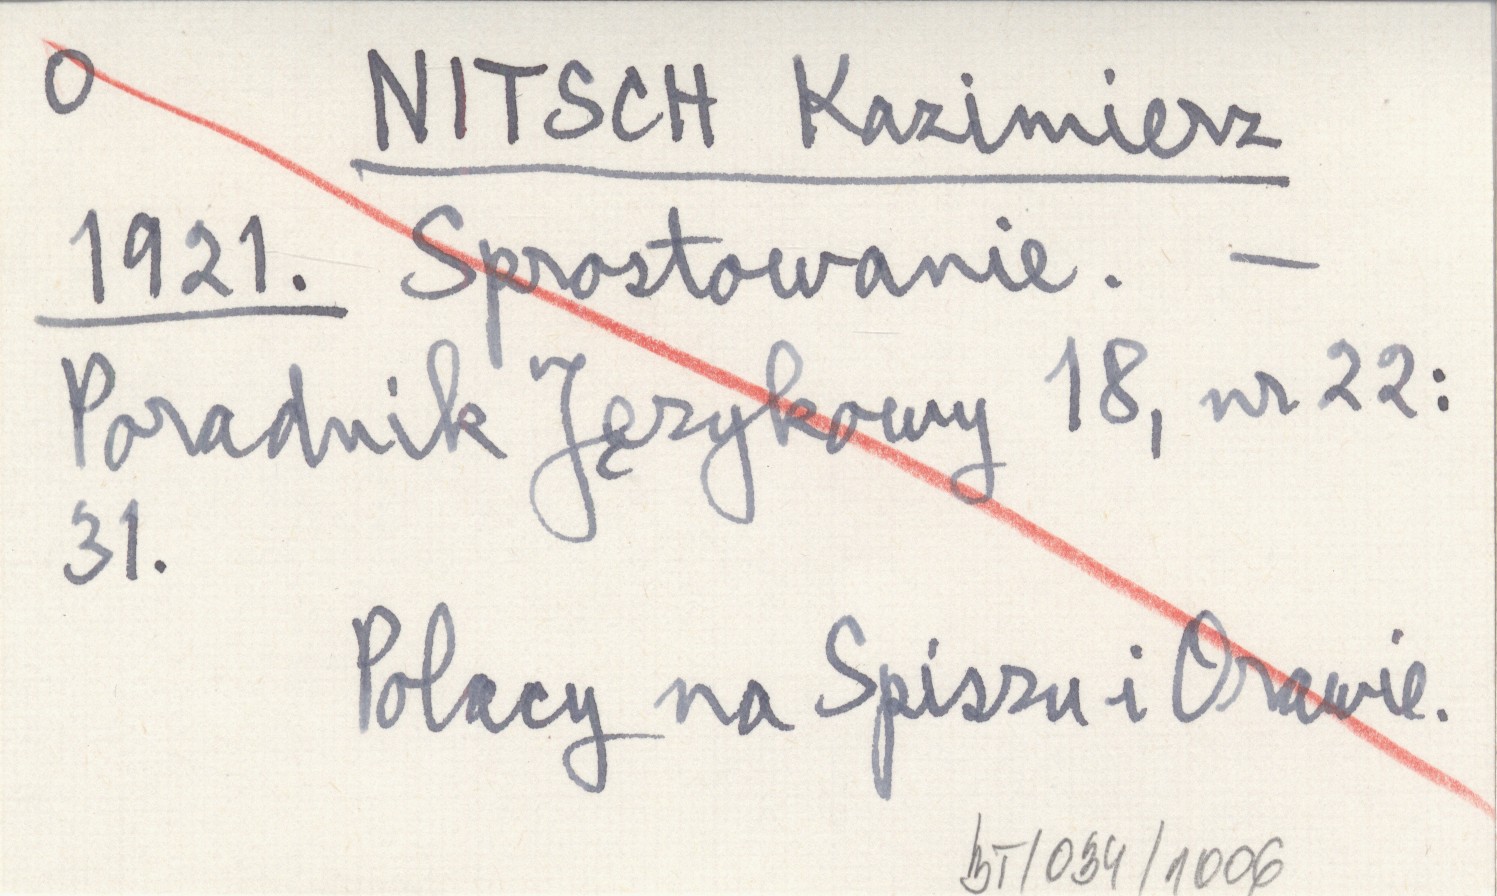 O NITSCH Kazimierz
1921. Sprostowanie. —
Poradnik Językowy 18, nr 22:
31.
Polacy na Spiszu i Orawie.
BT/034/1006